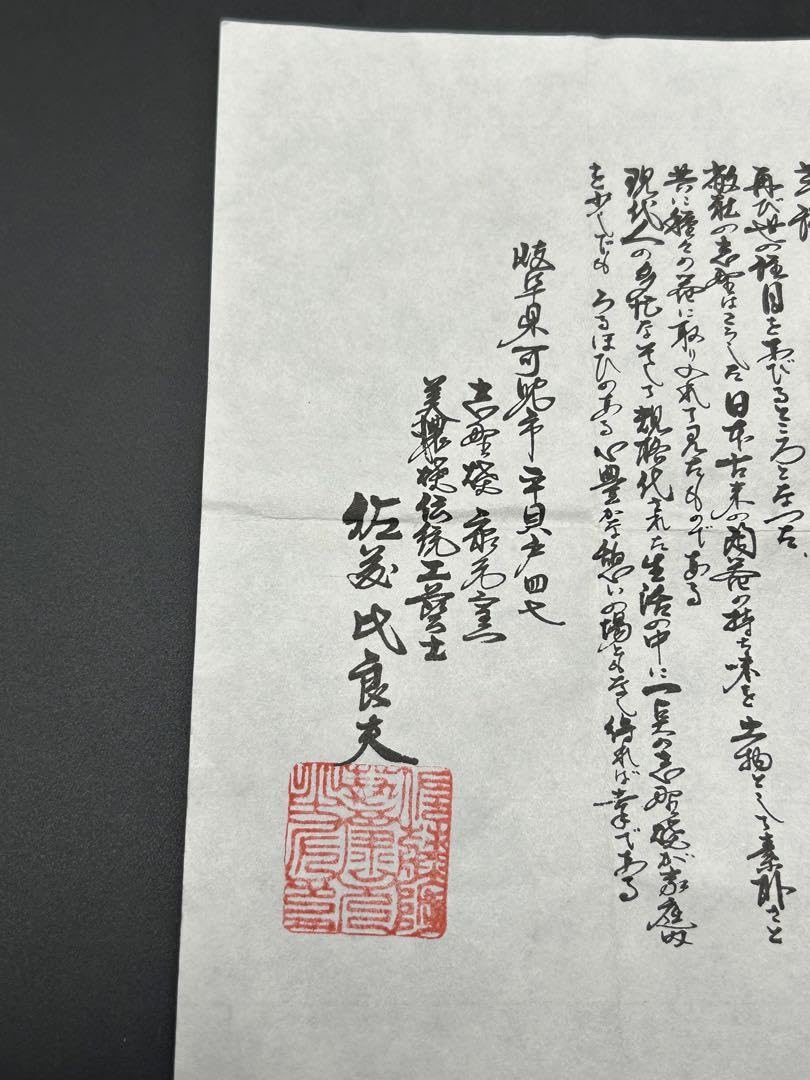 再び世の注目をあびるところとなった、
敝社の志野はこうした日本古来の陶器の持ち味を土物として素朴さと
共に種々の器に取り入れて見たものである
現代人の多忙なそして規格化された生活の中に一点の志野焼が家庭内
を少しでも うるほひのある心豊かな憩いの場ともなし得れば幸である
岐阜県可児市平貝戸四七
志野焼
美濃焼伝統工藝士
良夫